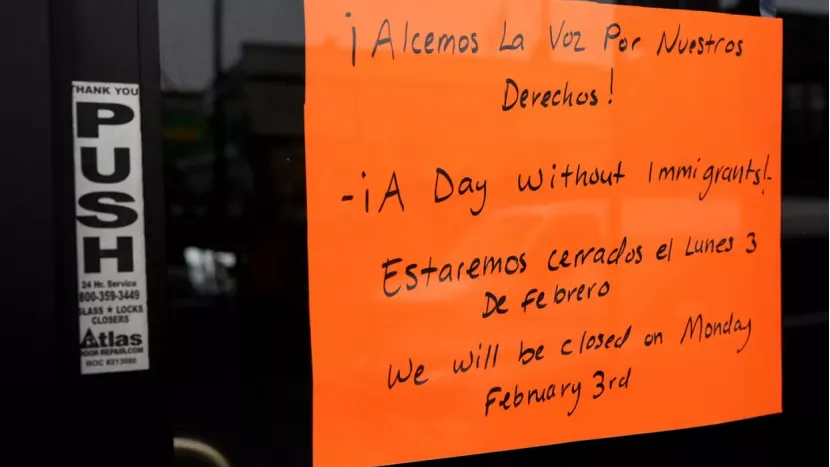 THANK YOU
PUSH
24 Hr. Service
800-359-3449
GLASS ★ LOCKS
CLOSERS
Atlas
DOOR REPAIR.COM
ROC #213680
¡Alcemos La Voz Por Nuestros
Derechos!
-¡A Day without Immigrants!-
Estaremos cerrados el Lunes 3
De febrero
We will be closed on Monday
February 3rd